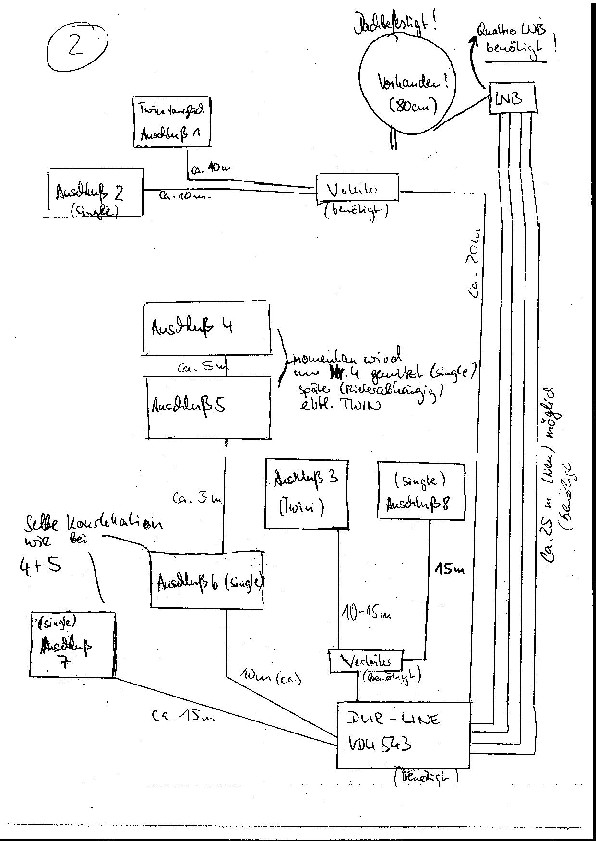 2
Dachbefestigt!
Quattro LNB
benötigt!
Vorhanden!
(80cm)
LNB
Anschluß 1
ca. 10m
Anschluß 2
(single)
ca. 10m
Verteiler
(benötigt)
ca. 20m
Anschluß 4
ca. 5m
Anschluß 5
momentan wird
nur 4 genutzt (single)
später (Mieterabhängig)
evtl. TWIN
ca. 25 m (neu) möglich
(benötigt)
ca. 3m
Anschluß 3
(Twin)
(single)
Anschluß 8
Selbe Konstellation
wie bei
4+5
15m
Anschluß 6 (single)
10-15m
(single)
Anschluß
7
Verteiler
(benötigt)
10m (ca)
ca 15m
DUR-LINE
VDU 543
(benötigt)